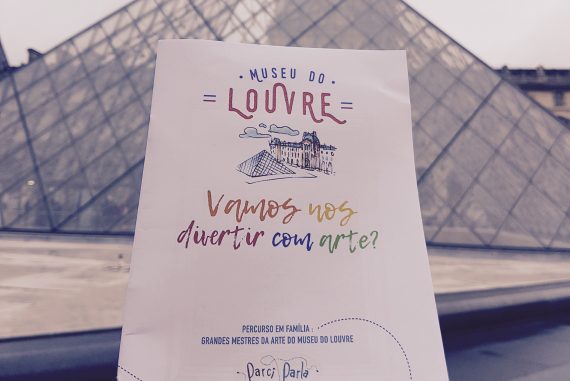 MUSEU DO
LOUVRE
Vamos nos
divertir com arte?
PERCURSO EM FAMÍLIA :
GRANDES MESTRES DA ARTE DO MUSEU DO LOUVRE
Parci Parla